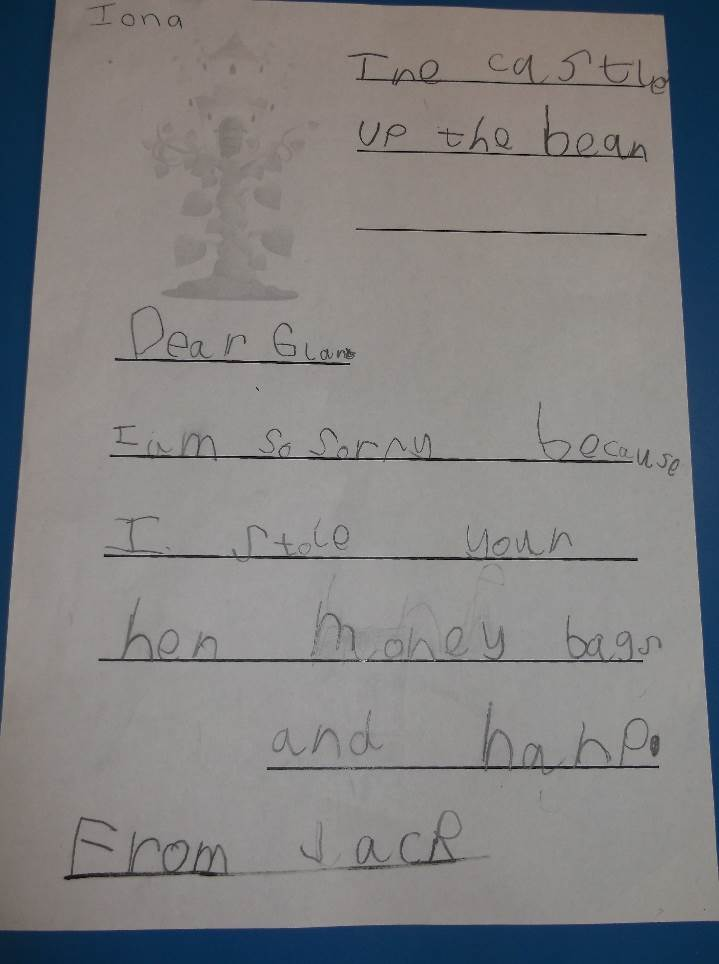 Iona
The castle
up the bean
Dear Giant
I am so sorry because
I stole your
hen money bags
and harp.
From Jack